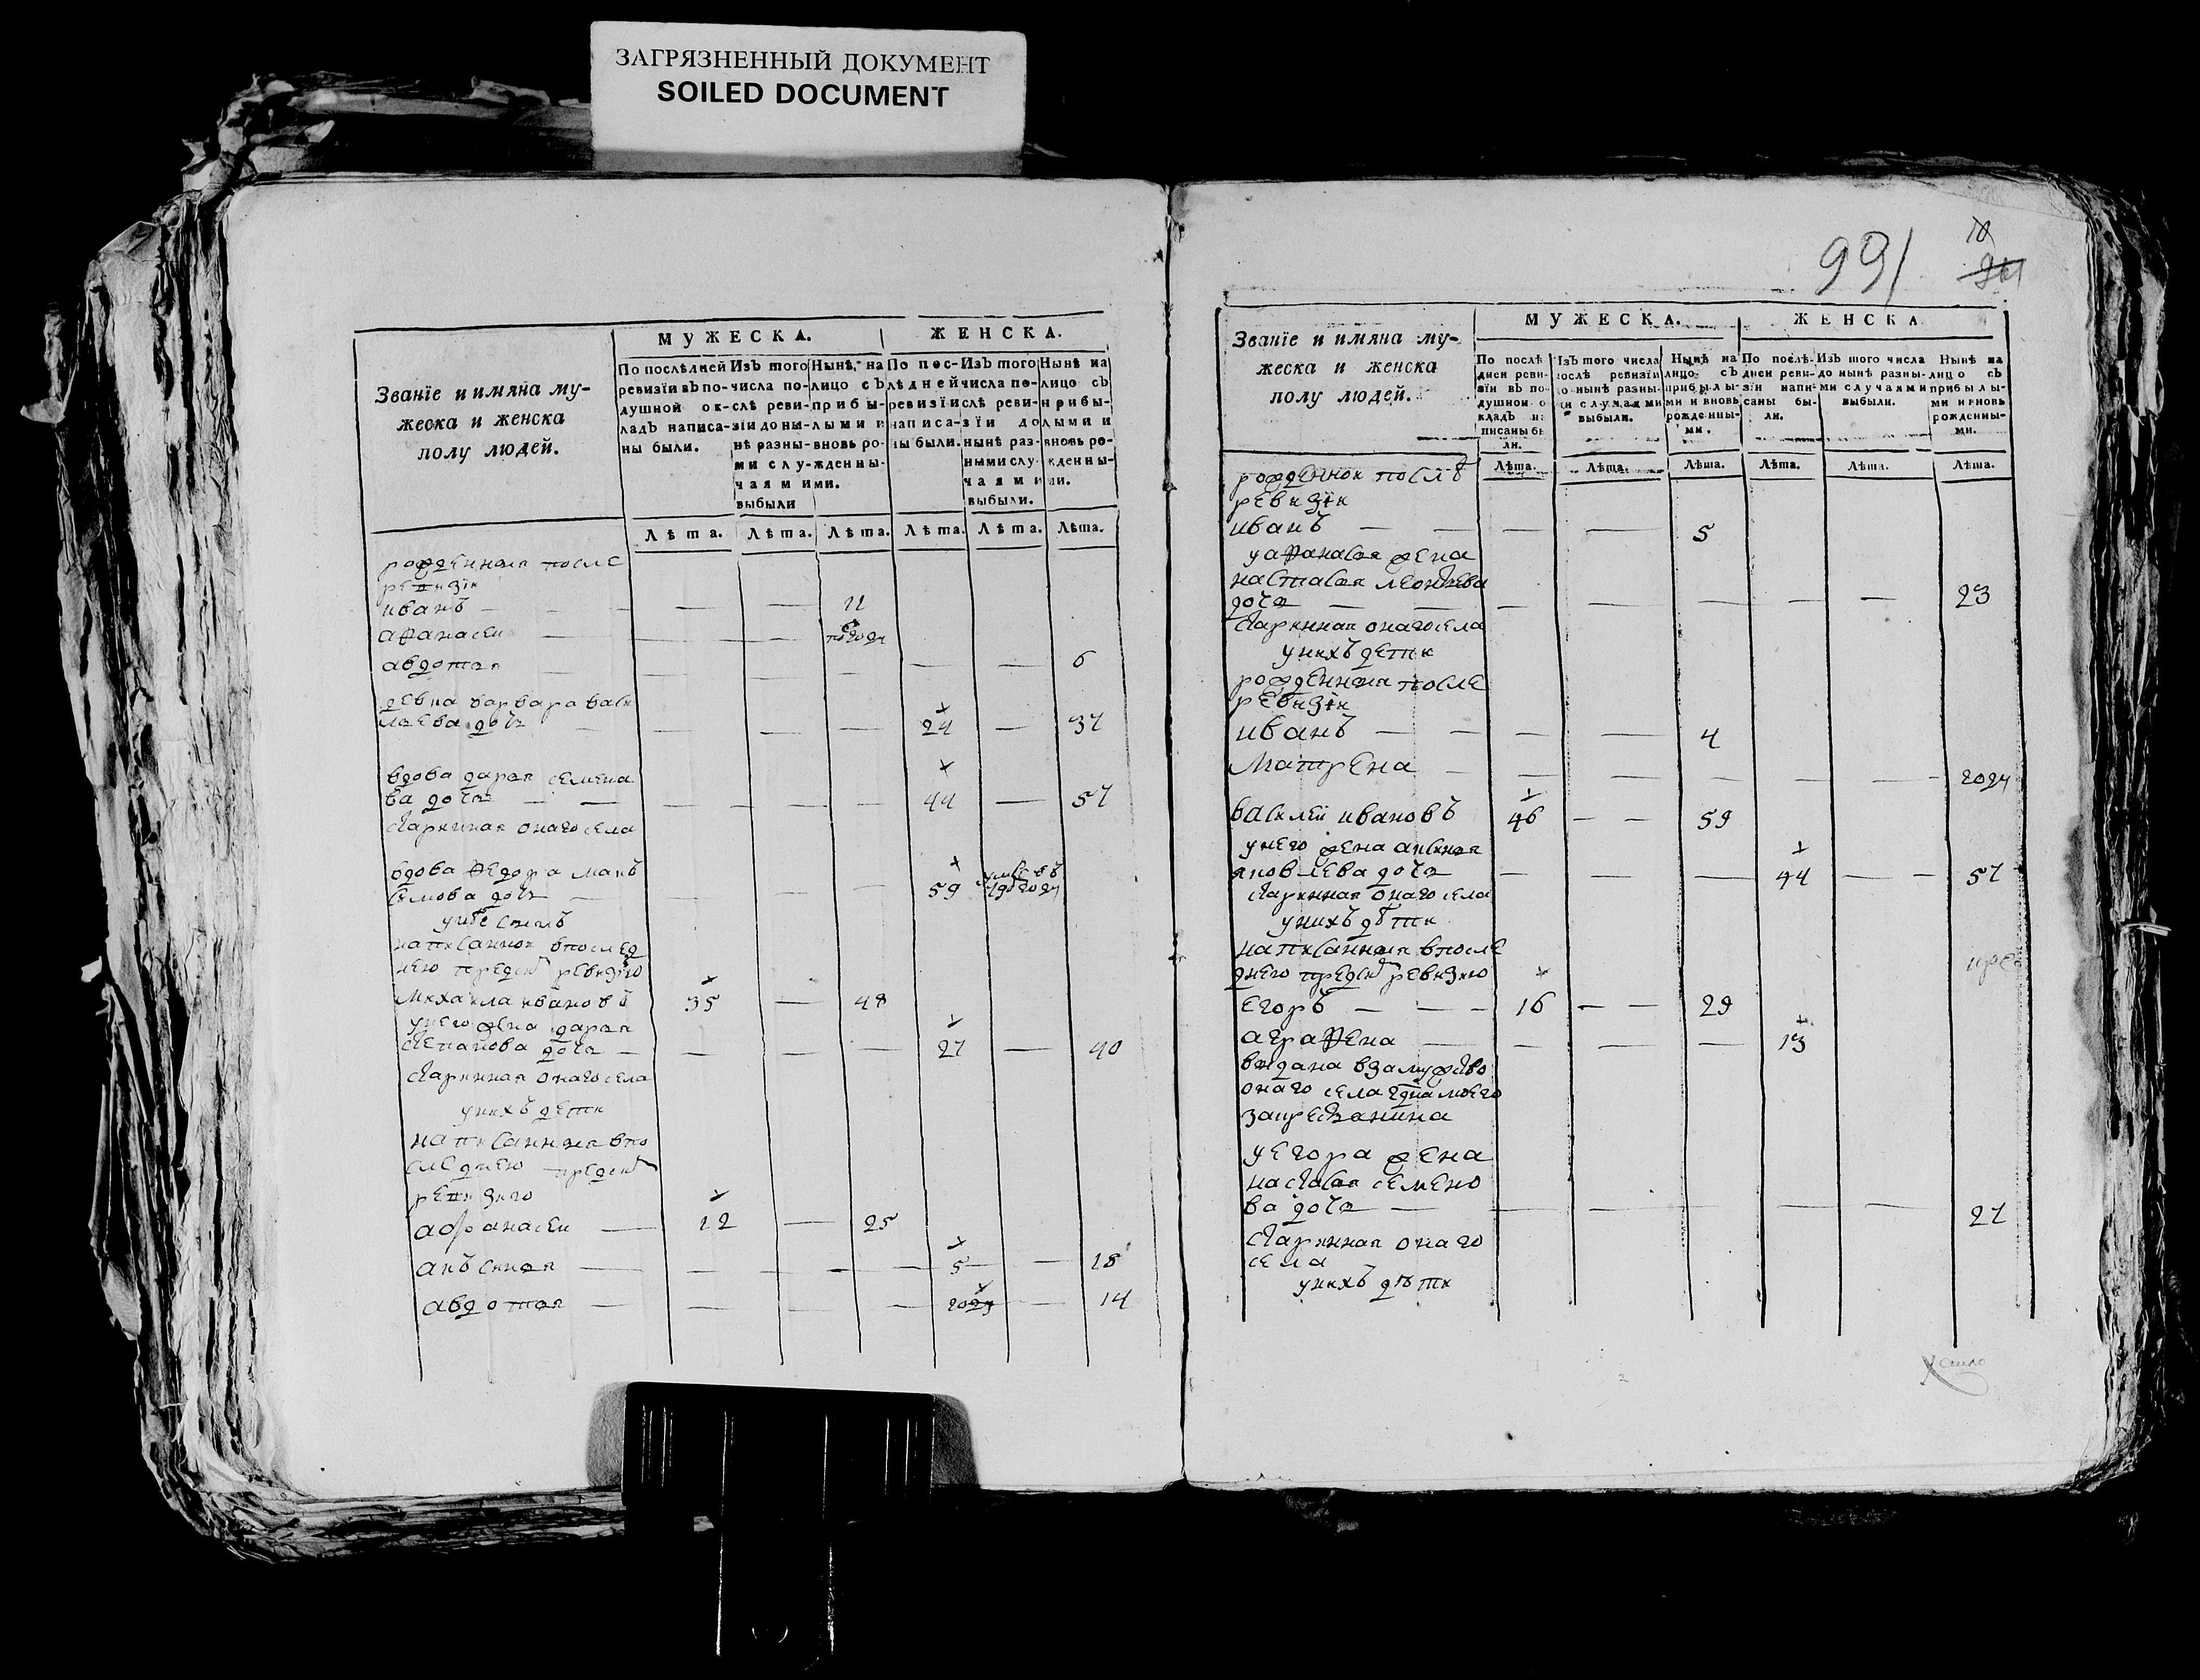 ЗАГРЯЗНЕННЫЙ ДОКУМЕНТ
SOILED DOCUMENT
Званїе и имяна му-
жеска и женска
полу людей.
МУЖЕСКА.
ЖЕНСКА.
По послѣдней
ревизїи въ по-
душной ок-
ладъ написа-
ны были.
Изъ того
числа по-
слѣ реви-
зїи до ны-
нѣ разны-
ми слу-
чаями
выбыли
Нынѣ на
лицо съ
прибы-
лыми и
вновь ро-
жденны-
ми.
По пос-
лѣдней
ревизїи
написа-
ны были.
Изъ того
числа по-
слѣ реви-
зїи до
нынѣ раз-
ными слу-
чаями
выбыли.
Нынѣ на
лицо съ
прибы-
лыми и
вновь ро-
жденны-
ми.
Лѣта. Лѣта. Лѣта. Лѣта. Лѣта. Лѣта.
рожденныя после
ревизїи
иванъ — — — — — 11
афанасеи — — —
авдотья — — — — — — 6
девка варвара васи
льева дочь — — — — 24 — 37
вдова дарья семена
ва дочь — — — — — — 44 — 57
старинная онаго села
вдова федора макъ
симова дочь — — — — 59
унее сынъ
написанной впослед
нею пред сим ревизїю
михаила ивановъ 35 — 48
унего жена дарья
степанова дочь — — — — 27 — 40
старинная онаго села
унихъ дети
написанныя впо
следнею пред сим
ревизию
афанасеи — 12 — 25
анъсинья — — — — — 5 — 18
авдотья — — — — году — 14
991
10
Званїе и имяна му-
жеска и женска
полу людей.
МУЖЕСКА.
ЖЕНСКА
По послѣ
дней реви-
зїи въ по-
душной о
кладъ на
писаны бы
ли.
Изъ того числа
послѣ ревизїи
до нынѣ разны-
ми случаями
выбыли.
Нынѣ на
лицо съ
прибылы-
ми и вновь
рожденны-
ми.
По послѣ-
дней реви-
зїи напи-
саны бы-
ли.
Изъ того числа
до нынѣ разны-
ми случаями
выбыли.
Нынѣ на
лицо съ
прибылы-
ми и вновь
рожденны-
ми.
Лѣта. Лѣта. Лѣта. Лѣта. Лѣта. Лѣта.
рожденной послѣ
ревизїи
иванъ — — — — 5
уафанасья жена
настасья леонтьева
дочь — — — — — — — 23
старинная онаго села
унихъ дети
рожденныя после
ревизїи
иванъ — — — — 4
матрена — — — — — — году
василеи ивановъ 46 — — 59
унего жена аксинья
яковлева дочь — — — 44 — — 57
старинная онаго села
унихъ дѣти
написанныя впосле
днею пред сим ревизию
егоръ — — — 16 — — 29
аграфена — — — — 13
выдана взамужство
онаго села
уегора жена
настасья семено
ва дочь — — — — — — 27
старинная онаго
села
унихъ дѣти